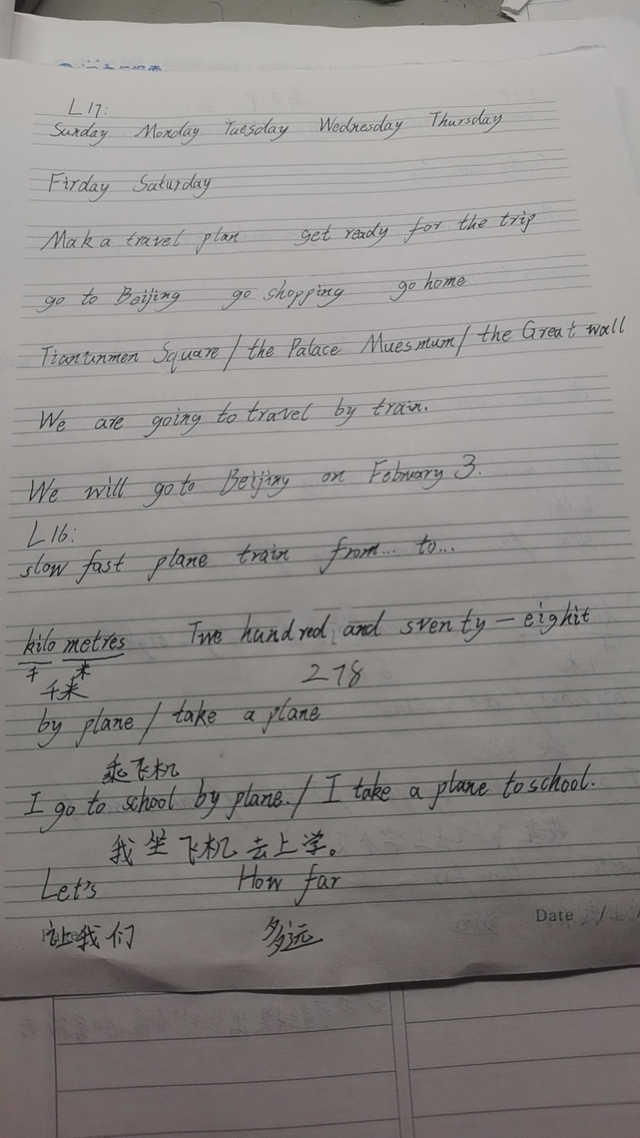 L17:
Sunday Monday Tuesday Wednesday Thursday
Firday Saturday
Mak a travel plan get ready for the trip
go to Baijing go shopping go home
Tiantunmen Square / the Palace Muesmum / the Great wall
We are going to travel by train.
We will go to Beijing on February 3.
L16:
slow fast plane train from... to...
kilo metres Two hundred and sventy - eighit
千 米 278
千米
by plane / take a plane
乘飞机
I go to school by plane. / I take a plane to school.
我坐飞机去上学。
Let's How far
Date / /
让我们 多远